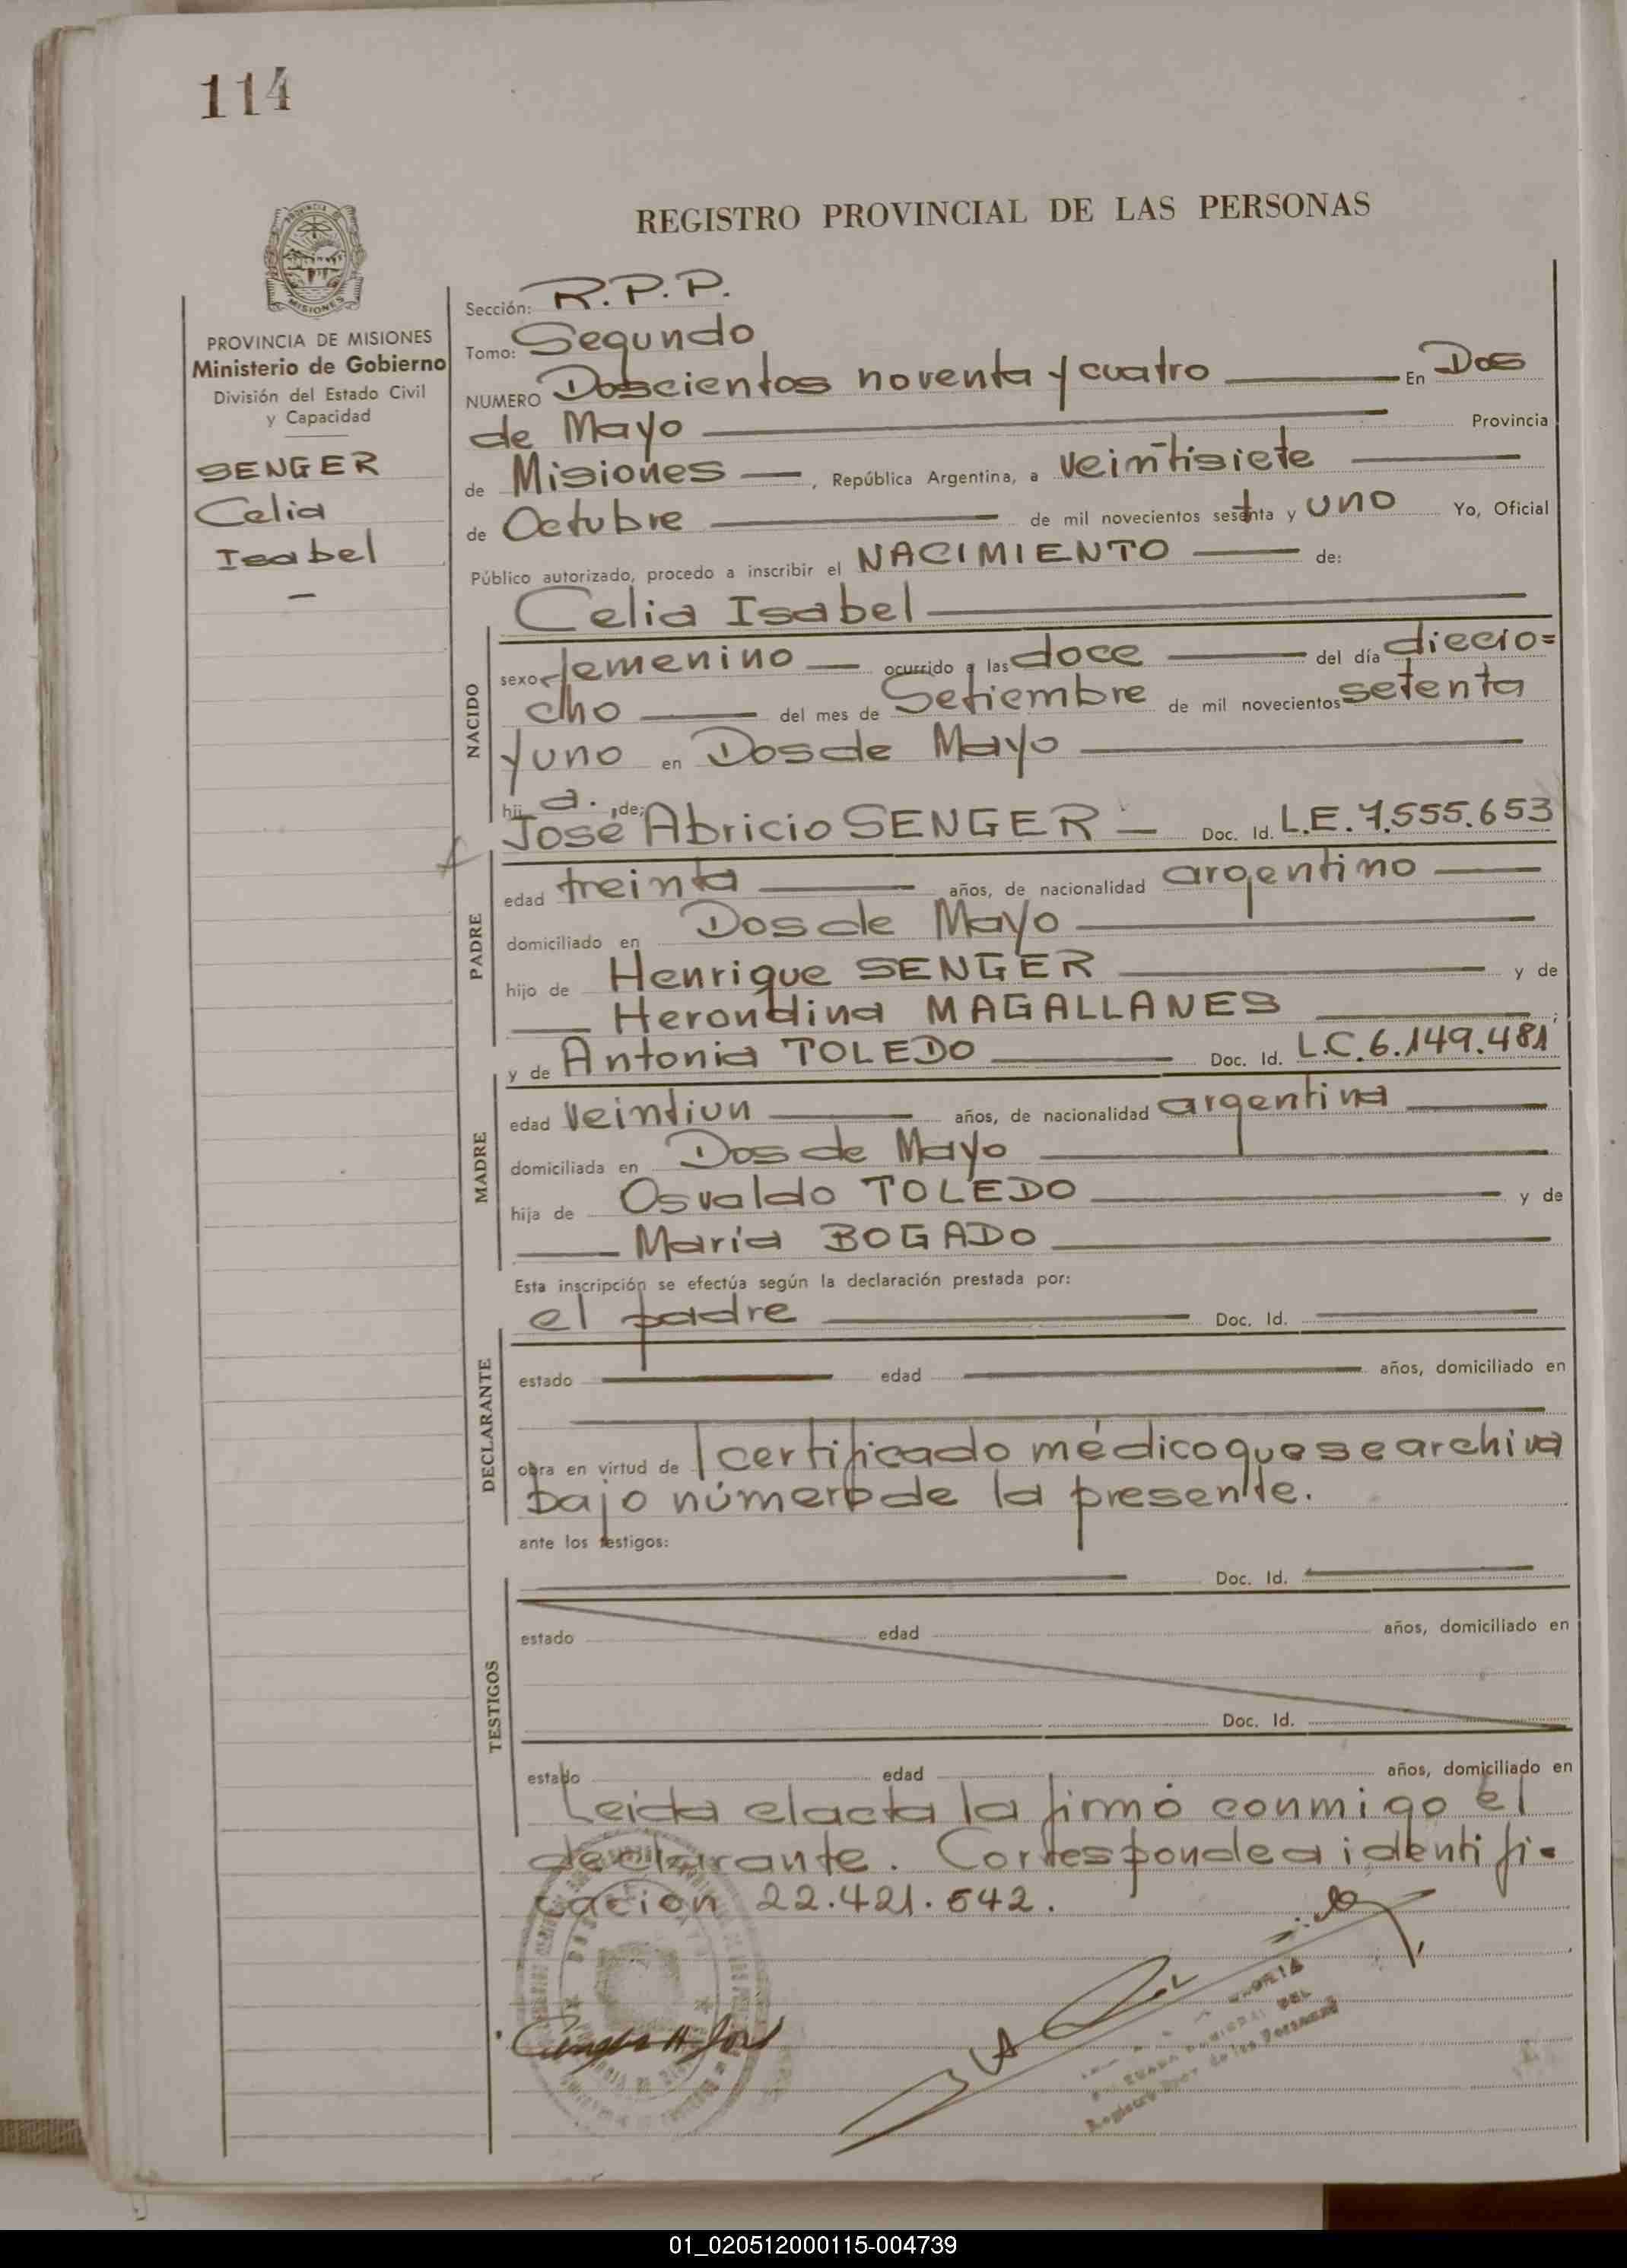 114
REGISTRO PROVINCIAL DE LAS PERSONAS
MISIONES
PROVINCIA DE MISIONES
Ministerio de Gobierno
División del Estado Civil
y Capacidad
SENGER
Celia
Isabel
Sección: R.P.P.
Tomo: Segundo
NUMERO Doscientos noventa y cuatro En Dos
de Mayo Provincia
de Misiones, República Argentina, a veintisiete
de Octubre de mil novecientos setenta y uno Yo, Oficial
Público autorizado, procedo a inscribir el NACIMIENTO de:
Celia Isabel
NACIDO
sexo femenino ocurrido a las doce del día diecio=
cho del mes de Setiembre de mil novecientos setenta
y uno en Dos de Mayo
hij a. ,de:
José Abricio SENGER Doc. Id. L.E. 7.555.653
PADRE
edad treinta años, de nacionalidad argentino
domiciliado en Dos de Mayo
hijo de Henrique SENGER y de
Herondina MAGALLANES ;
y de Antonia TOLEDO Doc. Id. L.C. 6.149.481
MADRE
edad veintiun años, de nacionalidad argentina
domiciliada en Dos de Mayo
hija de Osvaldo TOLEDO y de
María BOGADO
Esta inscripción se efectúa según la declaración prestada por:
el padre Doc. Id.
DECLARANTE
estado edad años, domiciliado en
obra en virtud de l certificado médico que se archiva
bajo número de la presente.
ante los testigos:
Doc. Id.
TESTIGOS
estado edad años, domiciliado en
Doc. Id.
estado edad años, domiciliado en
Leida el acta la firmó conmigo el
declarante. Corresponde a identifi-
cación 22.421.642.
01_020512000115-004739